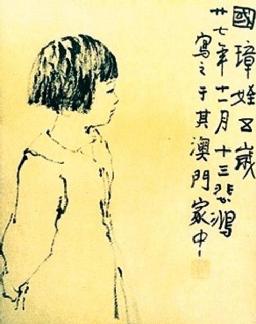 國璋姪五歲
廿七年十二月十三悲鴻
寫之于其澳門家中